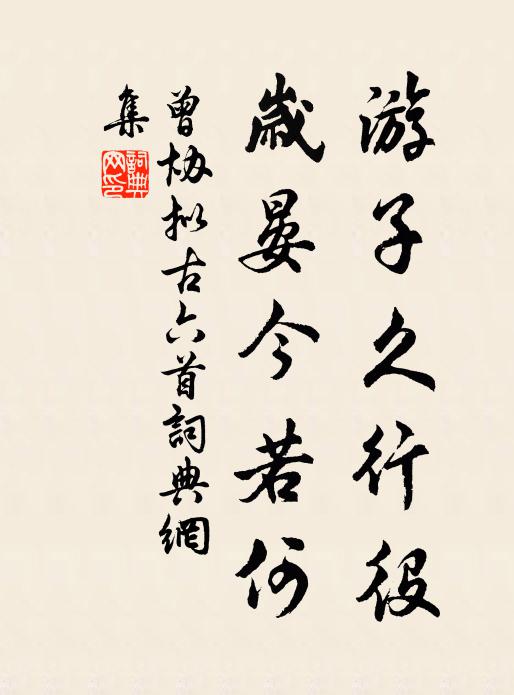 游子久行役
歲晏今若何
曾协拟古六首詞典網
集
詞典
网印